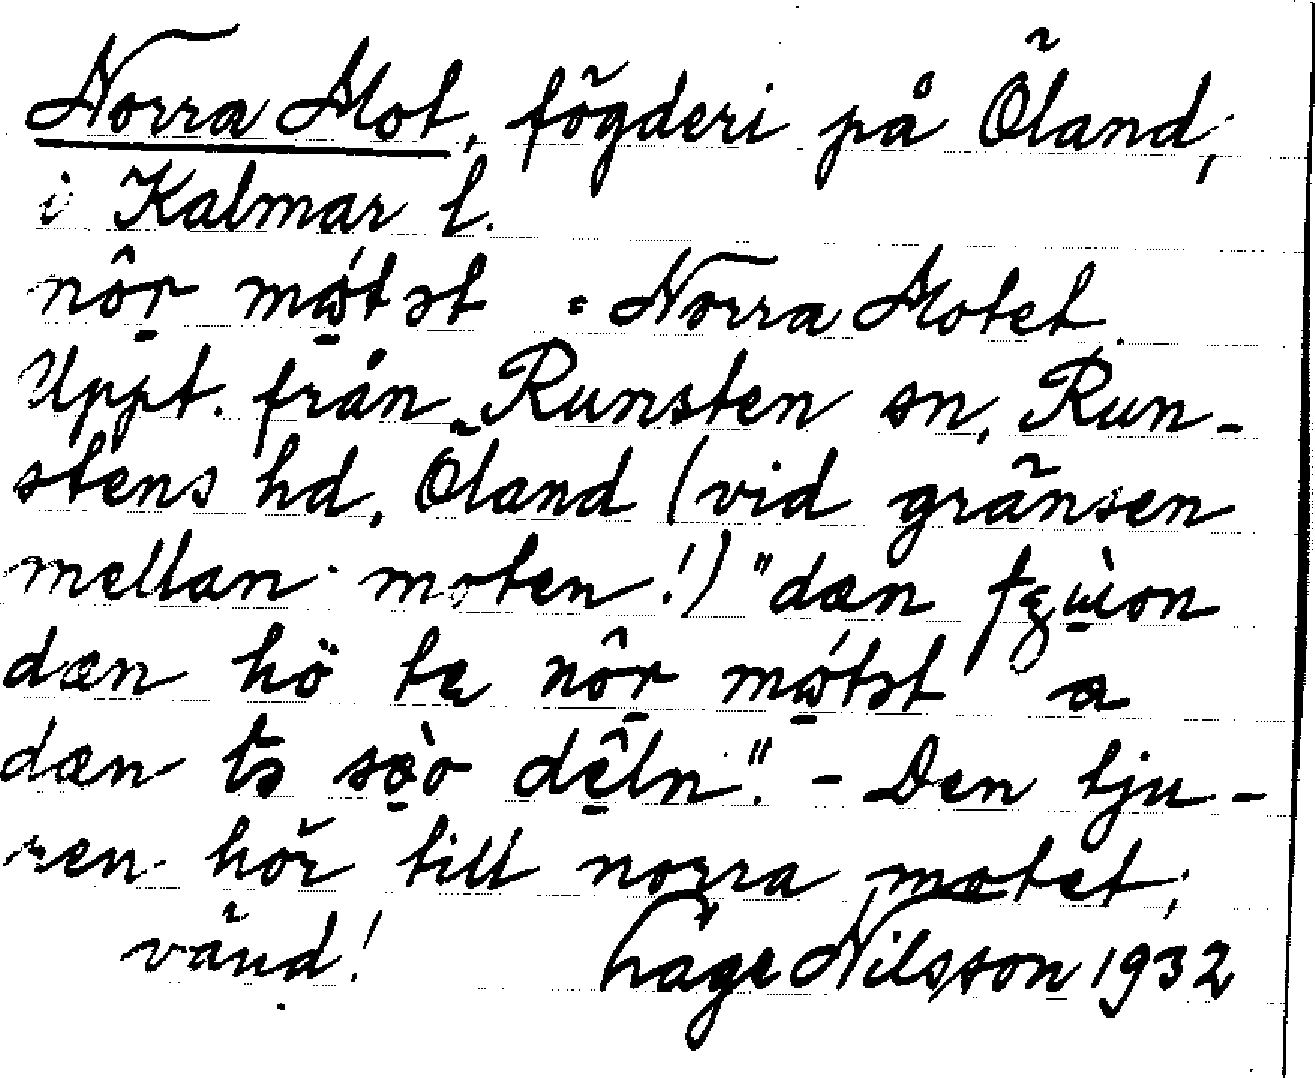 Norra Mot, fögderi på Öland,
i Kalmar l.
nôr mó̱tət = Norra Motet.
Uppt. från Runsten sn, Run-
stens hd, Öland (vid gränsen
mellan moten!) "dæn
dæn hö nôr mó̱tət a
dæn dêln". - Den tju-
ren hör till norra motet,
vänd! Hage Nilsson 1932